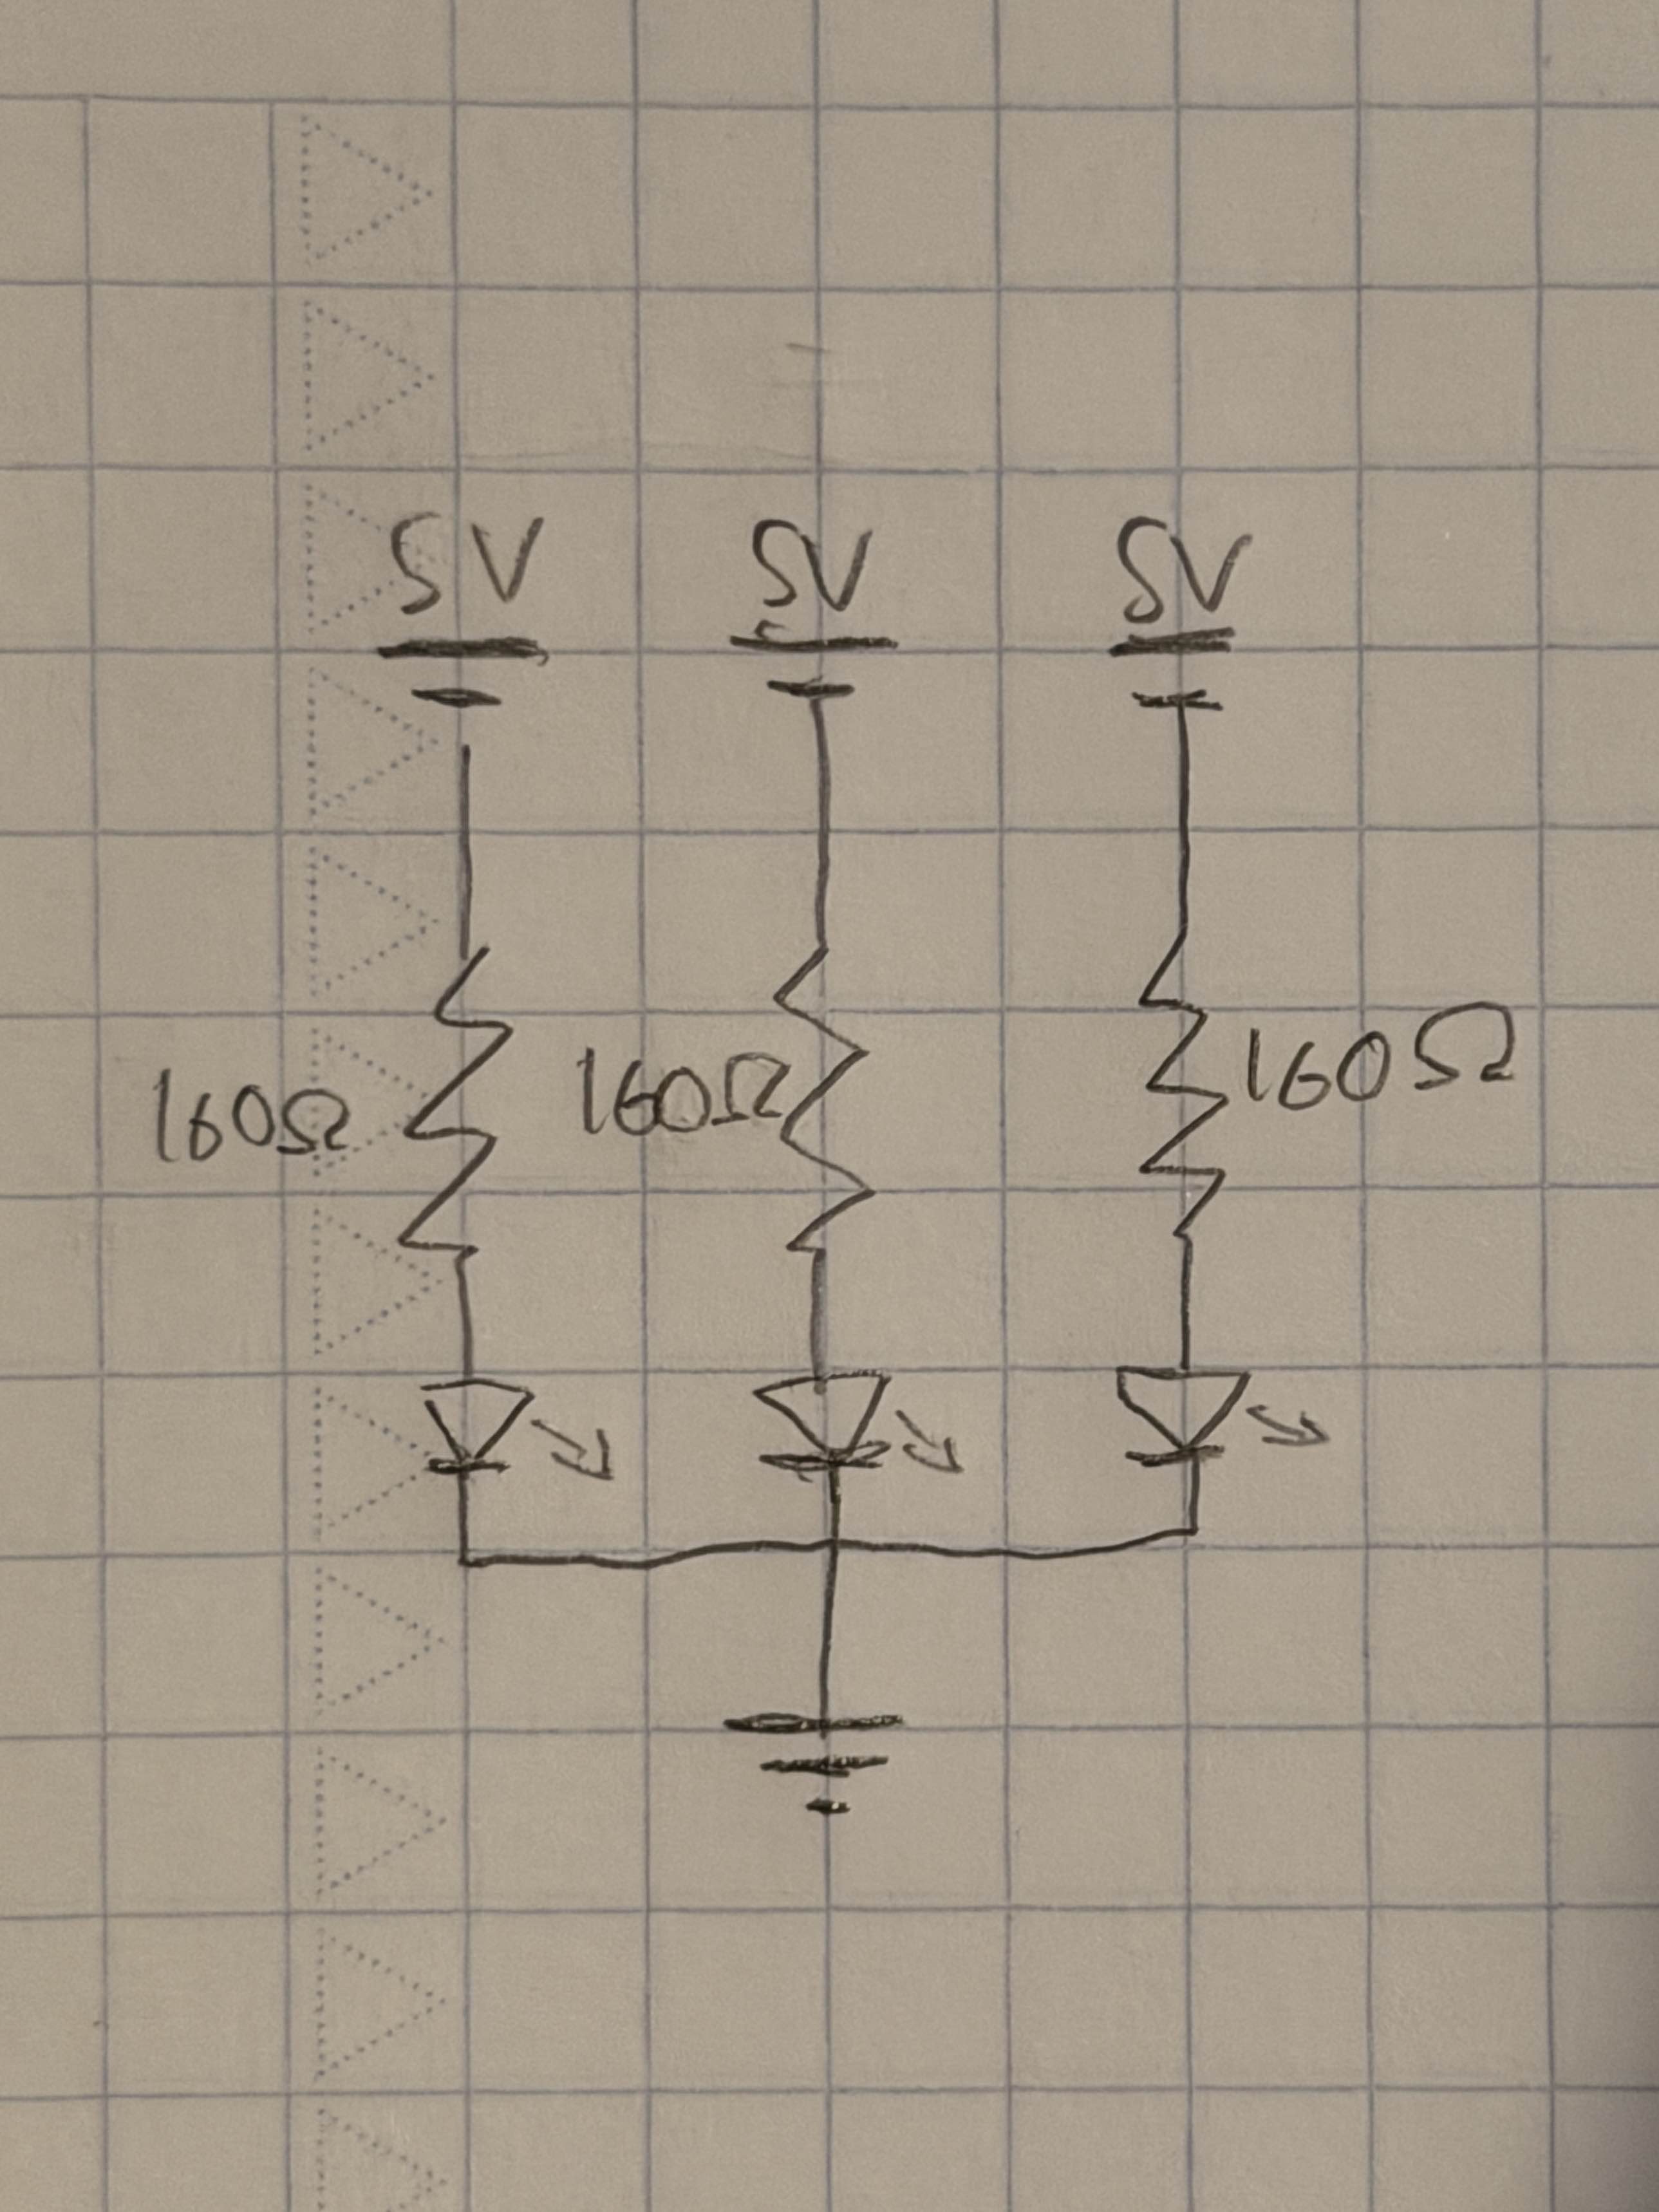 5V 5V 5V
160Ω 160Ω 160Ω